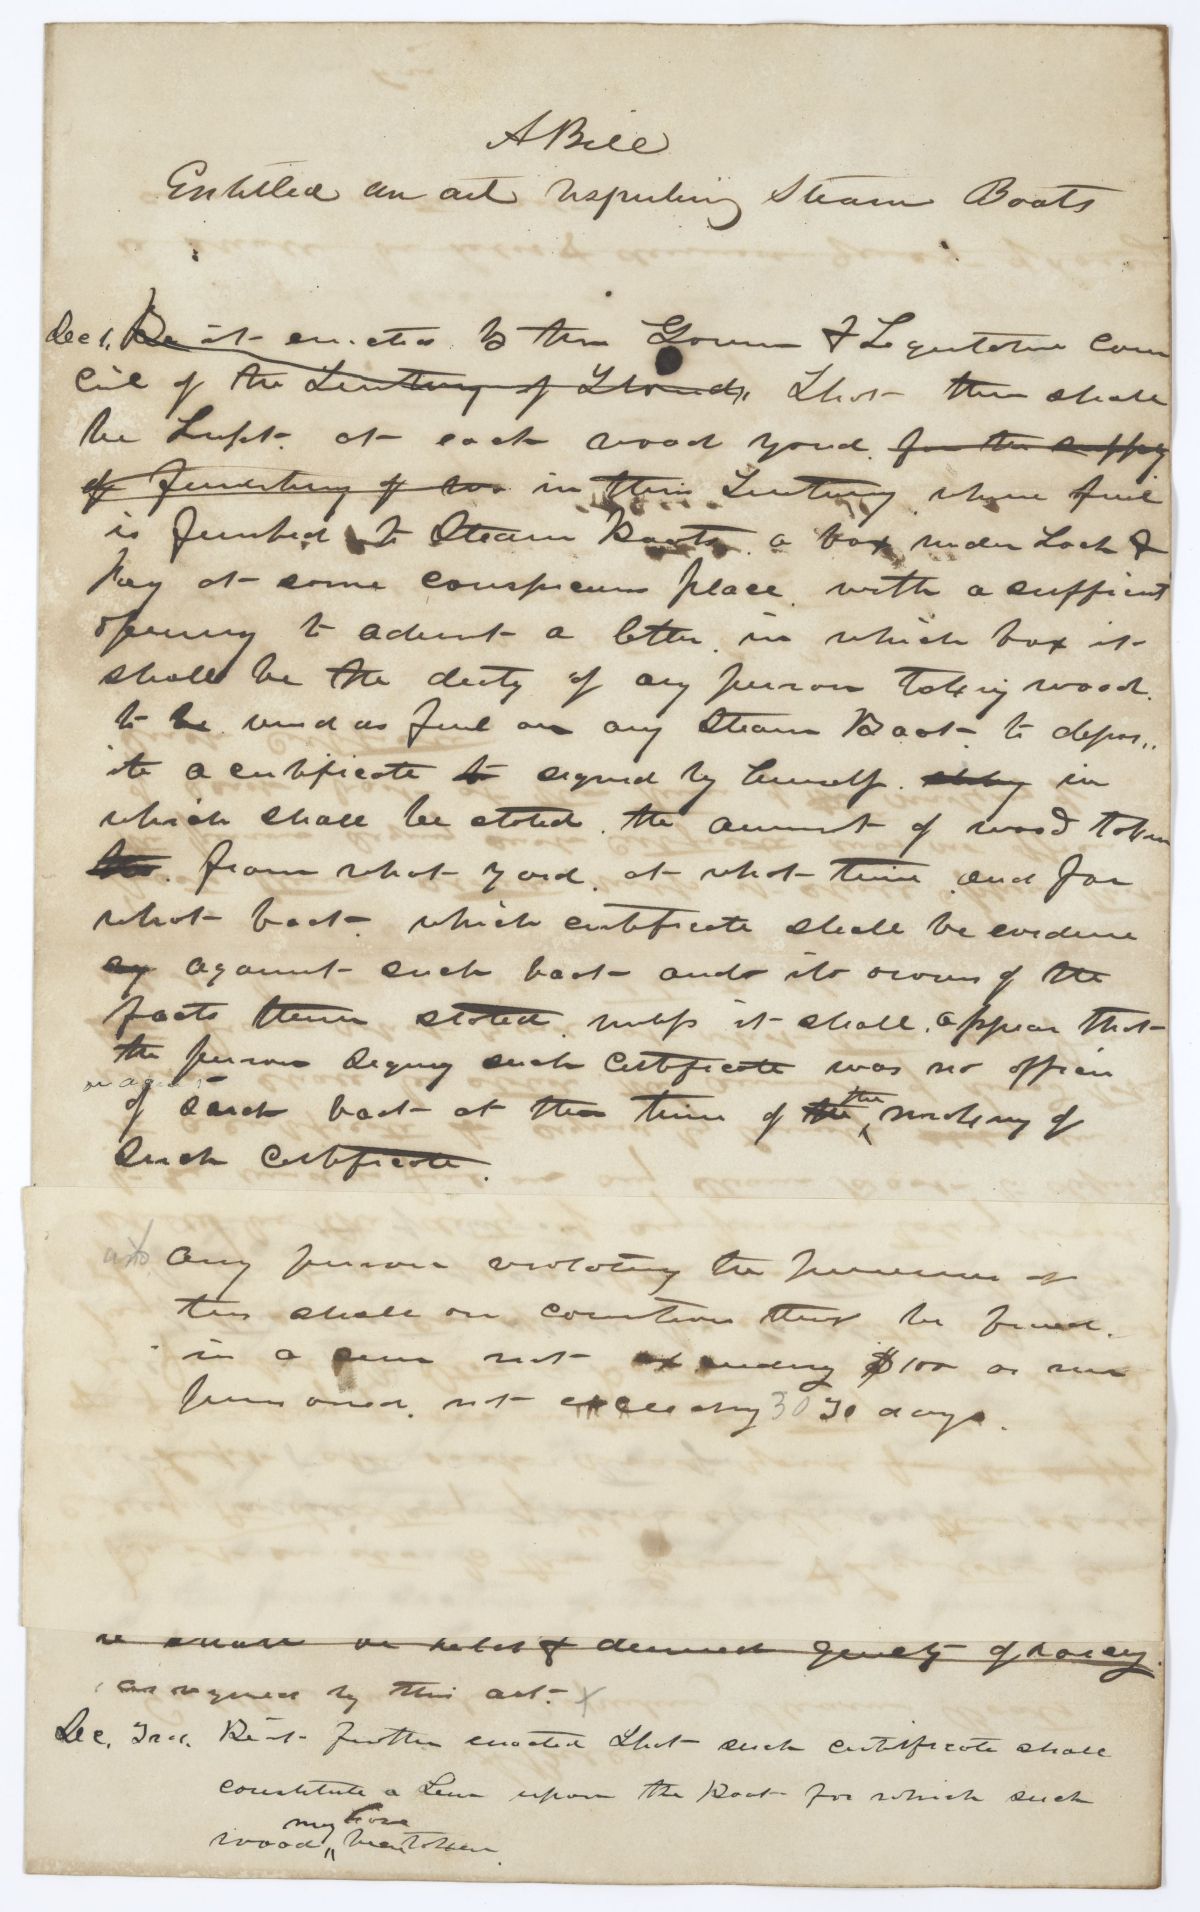 A Bill
Entitled an act respecting Steam Boats
Sec 1. Be it enacted by the Govenor & Legistative Coun
cil of the Territory of Florida, That there shall
be kept at each wood yard for the supply
of in this Territory where fuel
is furnished to Steam Boats a box under Lock &
Key at some conspicuous place with a sufficient
opening to admit a letter in which box it
shall be the duty of any person taking wood
to be used as fuel on any Steam Boat to depos„
ite a certificate to signed by himself in
which shall be stated the amount of wood taken
from what yard at what time and for
what boat which certificate shall be evidence
ag against such boat and its owners of the
facts therein stated unless it shall appear that
the person signing such certificate was no officer
or agent
of such boat at the time of the the making of
such certificate.
Any person violating the provisions of
this shall on conviction be fined
in a sum not exceeding $100 or im
prisoned not exceeding 30 30 days.
be held & deemed guilty of
as required by this act. x
Sec. 3rd. Be it further enacted That such certificate shall
constitute a Lien upon the Boat for which such
may have
wood been taken.